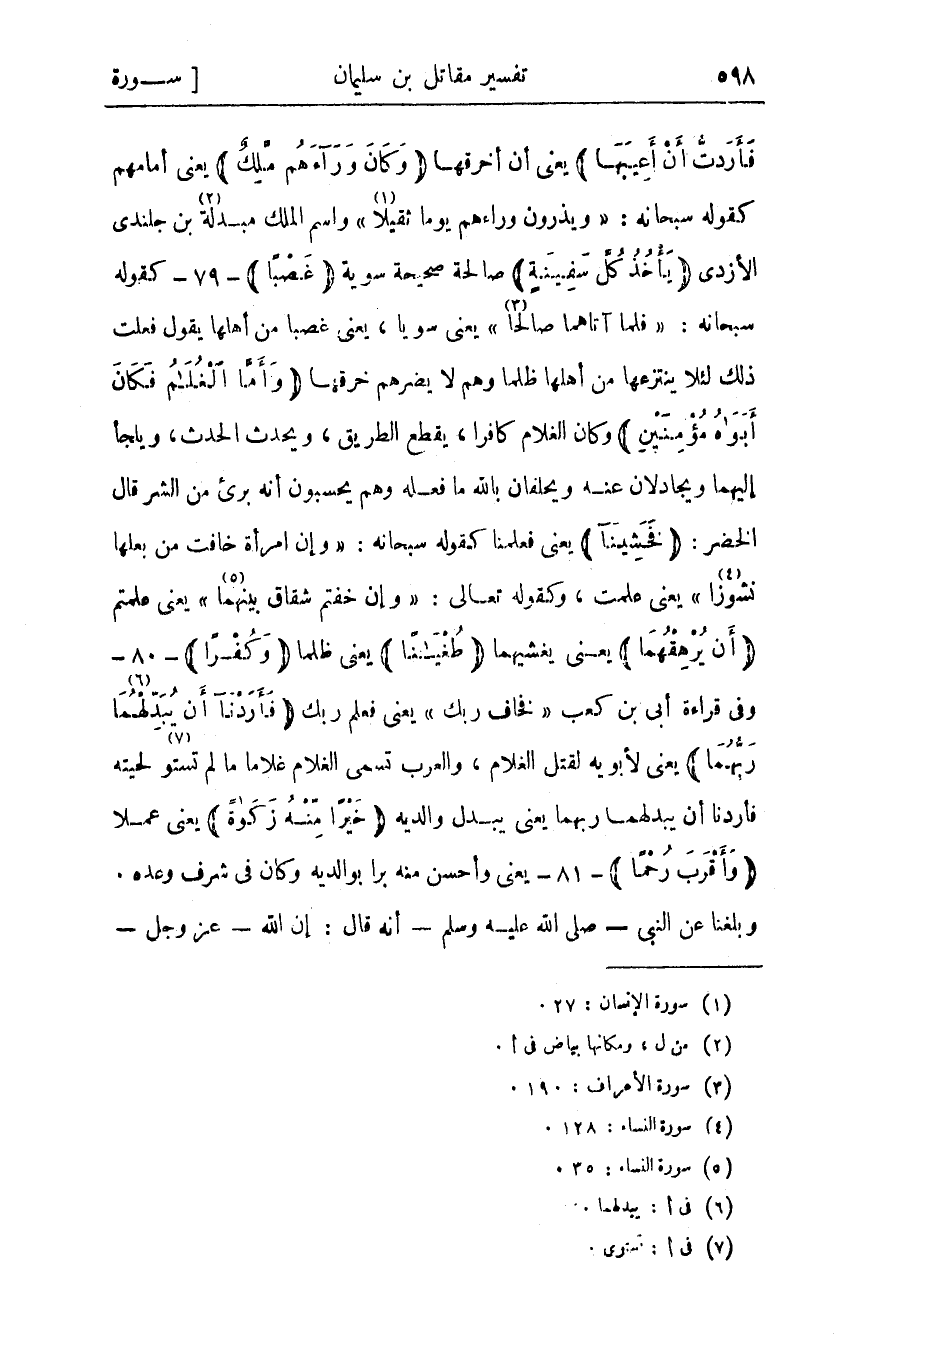 ٥٩٨ تفسير مقاتل بن سليمان [ ســـورة
فَأَرَدتُّ أَنْ أَعِيبَهَـا ﴾ يعنى أن أخرقهـا ﴿ وَكَانَ وَرَآءَهُم مَّلِكٌ ﴾ يعنى أمامهم
كقوله سبحانه : « ويذرون وراءهم يوما ثقيلا (١) » واسم الملك مبـدلة (٢) بن جلندى
الأزدى ﴿ يَأْخُذُ كُلَّ سَفِينَةٍ ﴾ صالحة صحيحة سوية ﴿ غَصْبًا ﴾ - ٧٩ - كقوله
سبحانه : « فلما آتاهما صالحا (٣) » يعنى سويا ، يعنى غصبا من أهلها يقول فعلت
ذلك لئلا ينتزعها من أهلها ظلما وهم لا يضرهم خرقهـا ﴿ وَأَمَّا ٱلْغُلَـٰمُ فَكَانَ
أَبَوَاهُ مُؤْمِنَيْنِ ﴾ وكان الغلام كافرا ، يقطع الطريق ، ويحدث الحدث ، ويلجأ
إليهما ويجادلان عنـه ويحلفان بالله ما فعـله وهم يحسبون أنه برئ من الشر قال
الخضر : ﴿ فَخَشِينَآ ﴾ يعنى فعلمنا كقوله سبحانه : « وإن امرأة خافت من بعلها
نشوزا (٤) » يعنى علمت ، وكقوله تعـالى : « وإن خفتم شقاق بينهما (٥) » يعنى علمتم
﴿ أَن يُرْهِقَهُمَا ﴾ يعـنى يغشيهما ﴿ طُغْيَـٰنًا ﴾ يعنى ظلما ﴿ وَكُفْـرًا ﴾ - ٨٠ -
وفى قراءة أبى بن كعب « فخاف ربك » يعنى فعلم ربك ﴿ فَأَرَدْنَآ أَن يُبَدِّلَهُمَا (٦)
رَبُّهُمَا ﴾ يعنى لأبويه لقتل الغلام ، والعرب تسمى الغلام غلاما ما لم تستو (٧) لحيته
فأردنا أن يبدلهمـا ربهما يعنى يبـدل والديه ﴿ خَيْرًا مِّنْـهُ زَكَوٰةً ﴾ يعنى عمـلا
﴿ وَأَقْرَبَ رُحْمًا ﴾ - ٨١ - يعنى وأحسن منه برا بوالديه وكان فى شرف وعده .
وبلغنا عن النبى — صلى الله عليـه وسلم — أنه قال : إن الله — عز وجل —
(١) سورة الإنسان : ٢٧ .
(٢) من ل ، ومكانها بياض فى أ .
(٣) سورة الأعراف : ١٩٠ .
(٤) سورة النساء : ١٢٨ .
(٥) سورة النساء : ٣٥ .
(٦) فى أ : يبدلهما .
(٧) فى أ : تستوى .